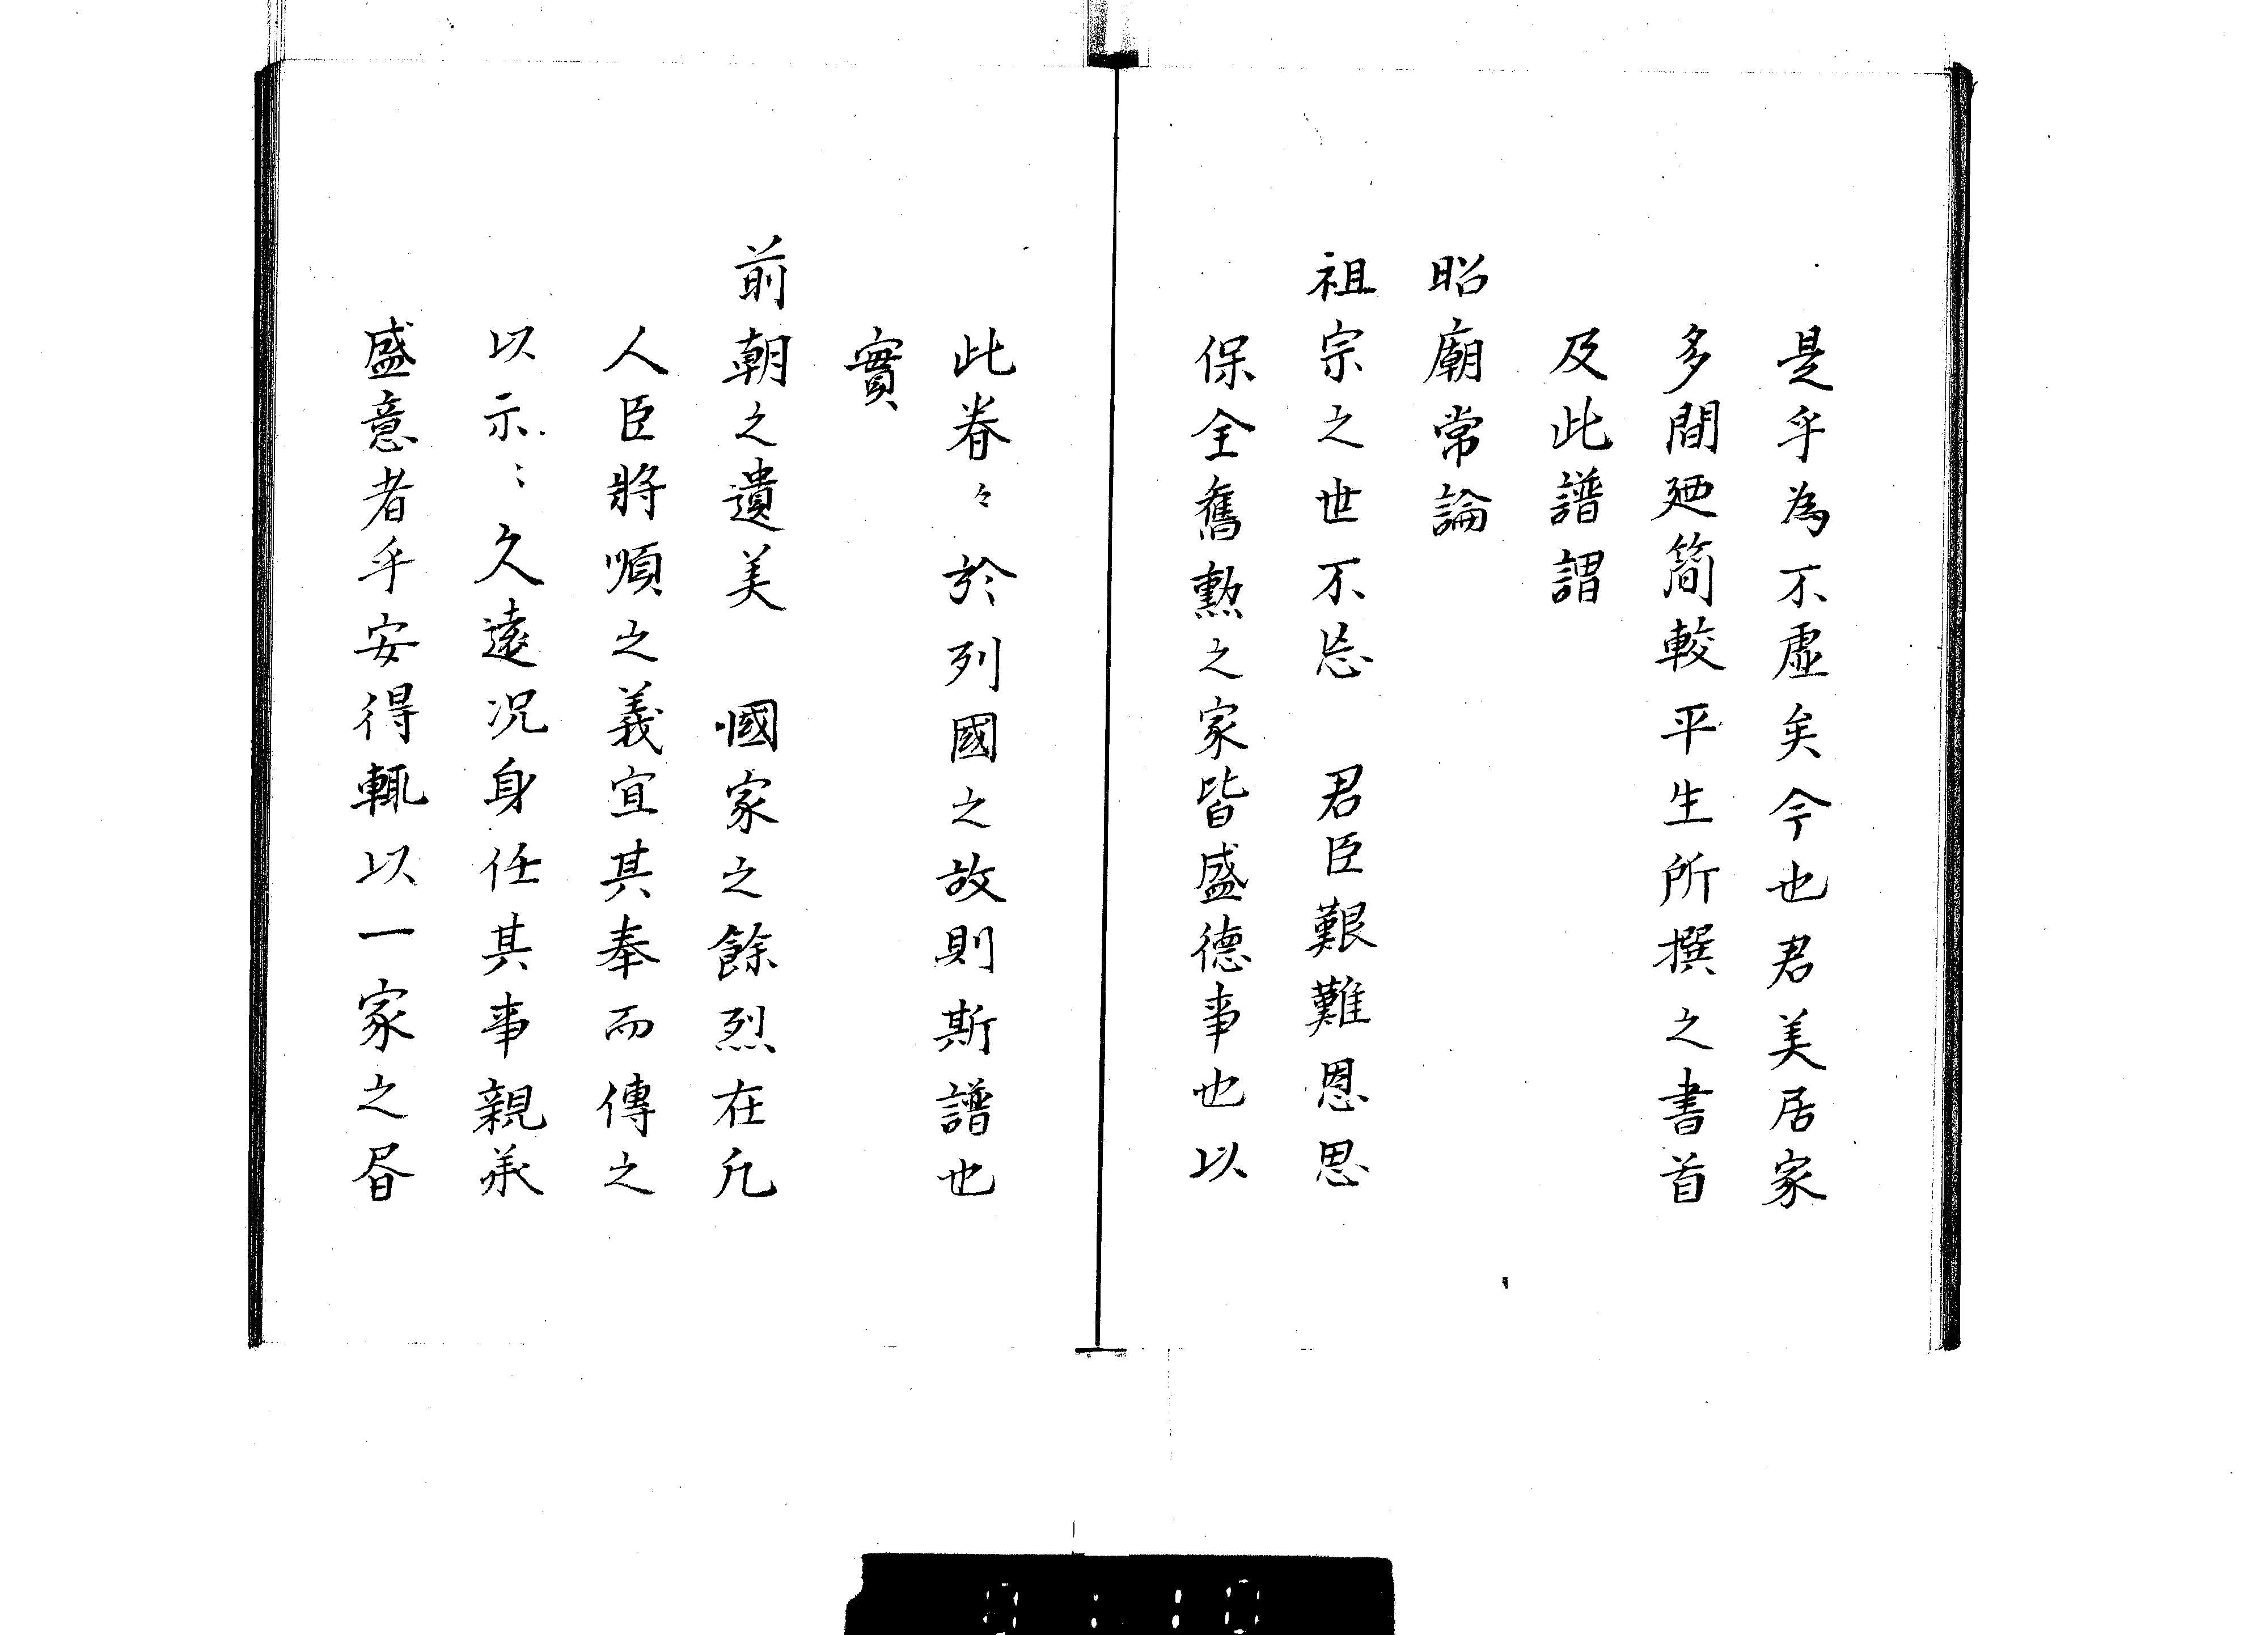 是乎為不虛矣今也君美居家
多間廼簡較平生所撰之書首
及此譜謂
昭廟常論
祖宗之世不忘　君臣艱難恩思
保全舊勲之家皆盛德事也以
此眷々於列國之故則斯譜也
實
前朝之遺美　國家之餘烈在凡
人臣將順之義宜其奉而傳之
以示〻久遠况身任其事親承
盛意者乎安得輒以一家之